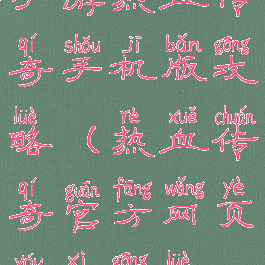 qí shǒu jī bǎn gōng
奇 手 机 版 攻
lüè rè xuě chuán
略 （ 热 血 传
qí guān fāng wǎng yè
奇 官 方 网 页
yóu xì gōng lüè